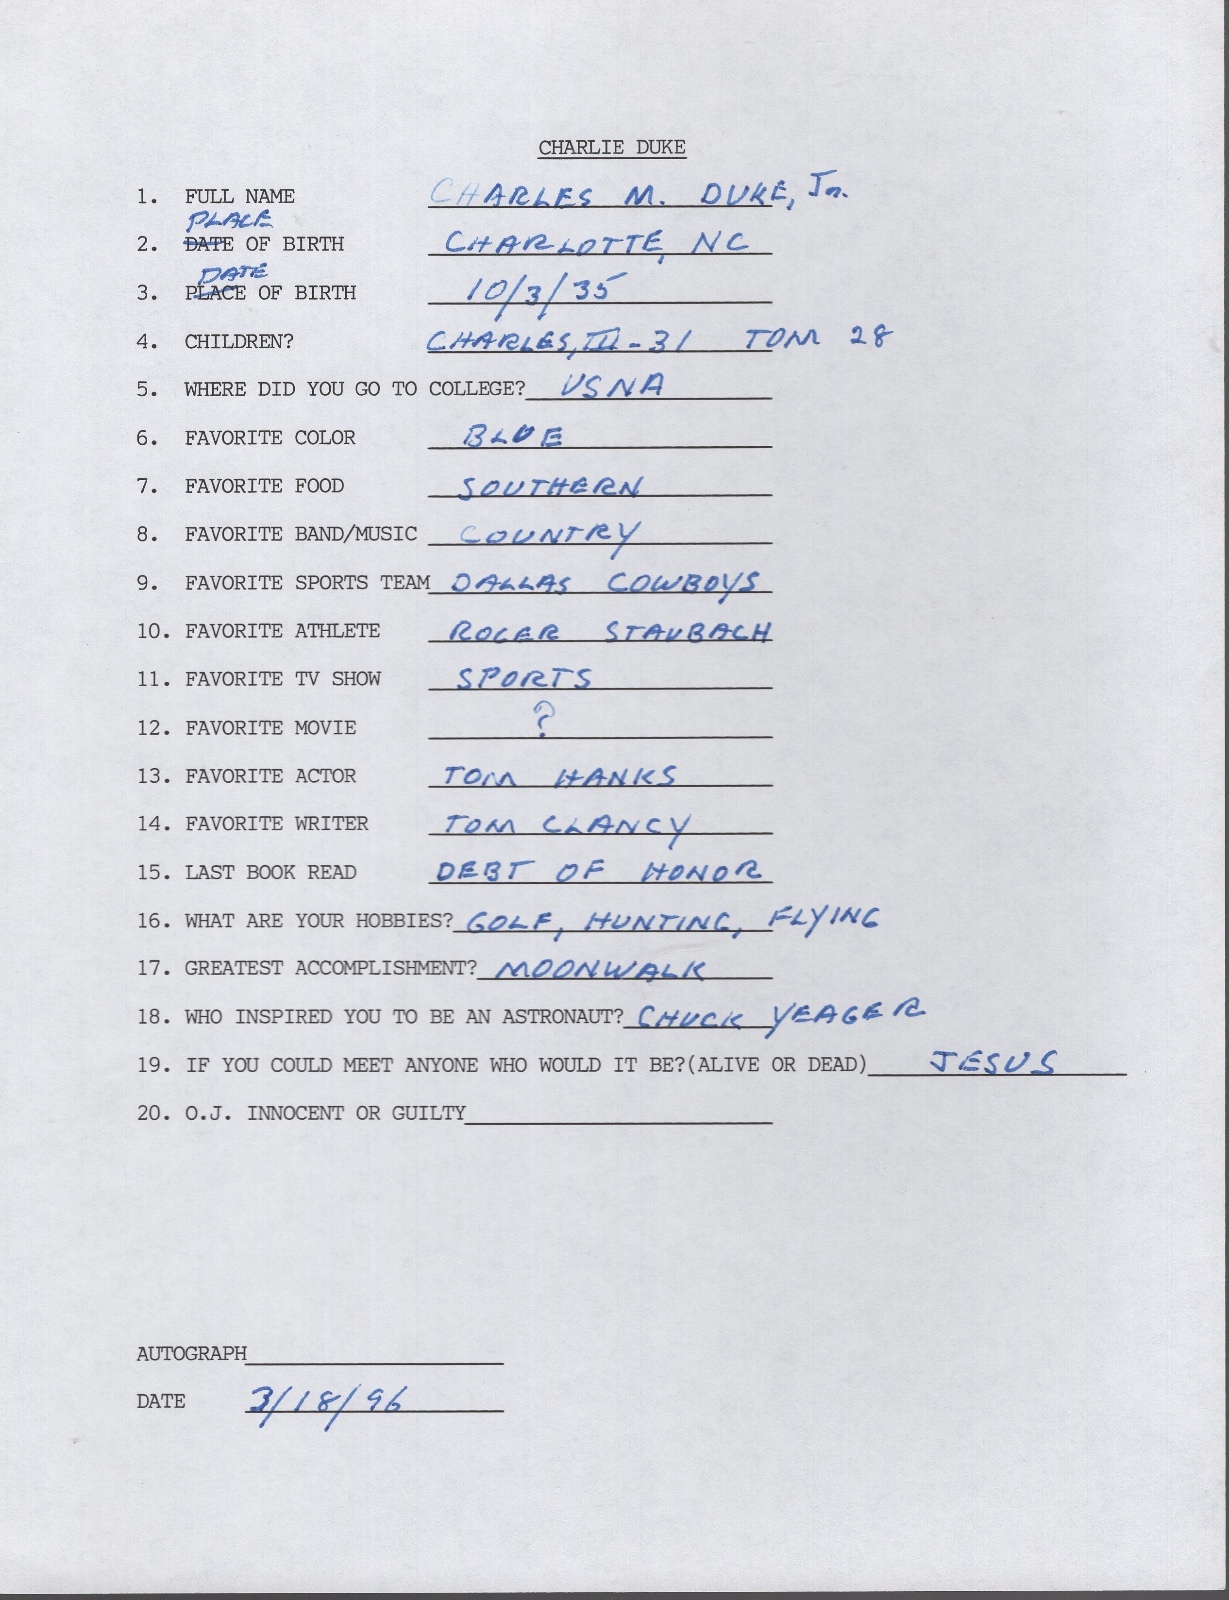 CHARLIE DUKE
1. FULL NAME CHARLES M. DUKE, Jr.
PLACE
2. DATE OF BIRTH CHARLOTTE, NC
DATE
3. PLACE OF BIRTH 10/3/35
4. CHILDREN? CHARLES, III - 31 TOM 28
5. WHERE DID YOU GO TO COLLEGE? USNA
6. FAVORITE COLOR BLUE
7. FAVORITE FOOD SOUTHERN
8. FAVORITE BAND/MUSIC COUNTRY
9. FAVORITE SPORTS TEAM DALLAS COWBOYS
10. FAVORITE ATHLETE ROGER STAUBACH
11. FAVORITE TV SHOW SPORTS
12. FAVORITE MOVIE ?
13. FAVORITE ACTOR TOM HANKS
14. FAVORITE WRITER TOM CLANCY
15. LAST BOOK READ DEBT OF HONOR
16. WHAT ARE YOUR HOBBIES? GOLF, HUNTING, FLYING
17. GREATEST ACCOMPLISHMENT? MOONWALK
18. WHO INSPIRED YOU TO BE AN ASTRONAUT? CHUCK YEAGER
19. IF YOU COULD MEET ANYONE WHO WOULD IT BE?(ALIVE OR DEAD) JESUS
20. O.J. INNOCENT OR GUILTY
AUTOGRAPH
DATE 3/18/96